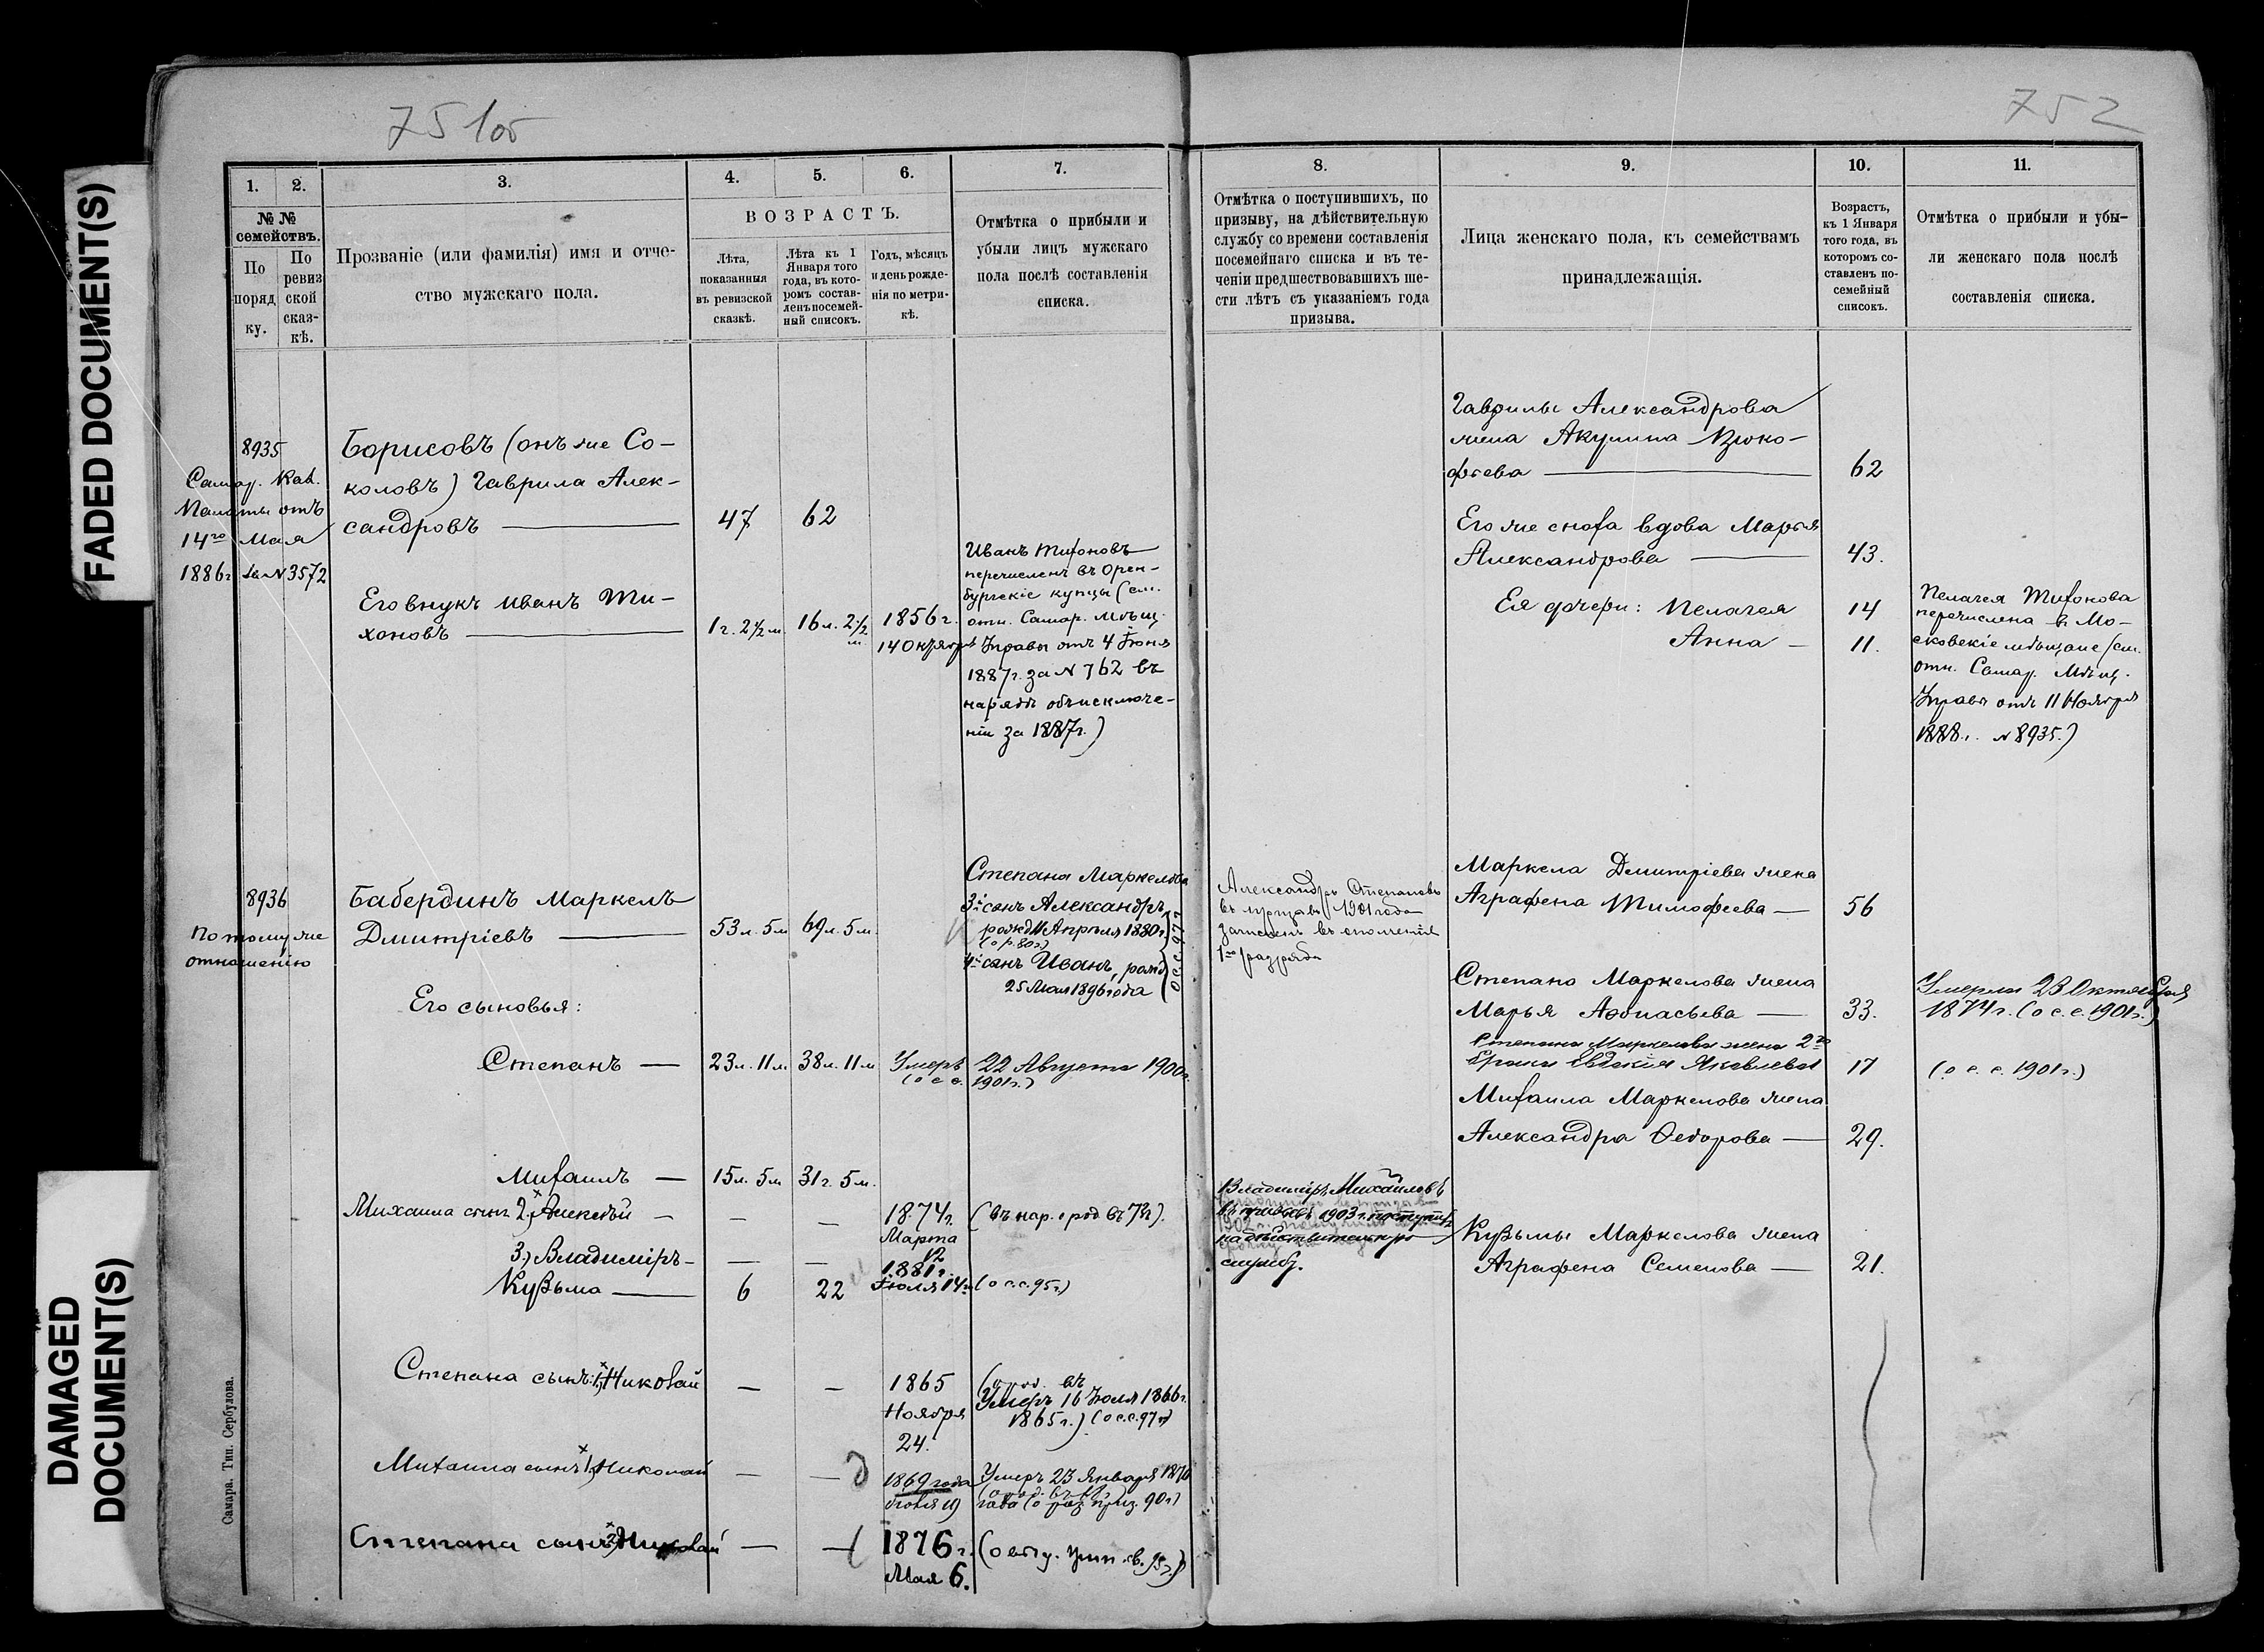 FADED DOCUMENT(S)
DAMAGED
DOCUMENT(S)
751об
752
1.
2.
3.
4.
5.
6.
7.
№ №
семействъ.
По
поряд
ку.
По
ревиз
ской
сказ-
кѣ.
Прозваніе (или фамилія) имя и отче-
ство мужскаго пола.
ВОЗРАСТЪ.
Лѣта,
показанныя
въ ревизской
сказкѣ.
Лѣта къ 1
Января того
года, въ кото-
ромъ состав-
ленъ посемей-
ный списокъ.
Годъ, мѣсяцъ
и день рожде-
нія по метри-
кѣ.
Отмѣтка о прибыли и
убыли лицъ мужскаго
пола послѣ составленія
списка.
8935
Самар. Каз.
Палаты отъ
14го Мая
1886г за № 3572
Борисовъ (онъ же Со-
коловъ) Гаврила Алек-
сандровъ —
47
62
Его внукъ Иванъ Ти-
хоновъ —
1 г. 2½ м.
16 л. 2½
м.
1856 г.
14 Октября
Иванъ Тихоновъ
перечисленъ въ Орен-
бургскіе купцы (см.
отн. Самар. Мѣщ.
Управы отъ 4 Іюня
1887 г. за № 762 въ
нарядѣ объ исключе-
ніи за 1887 г.)
8936
По тому же
отношенію
Бабердинъ Маркелъ
Дмитріевъ —
53 л. 5 м
69 л. 5 м.
Степана Маркелова
3й сынъ Александръ
рожд. 11 Апрѣля 1880 г.
(о р. 80 г.)
4й сынъ Иванъ, рожд
25 Мая 1896 года
о с с 97 г
Его сыновья:
Степанъ —
23 л. 11 м
38 л. 11 м
Умеръ 22 Августа 1900 г.
(о с с. 1901 г.)
Михаилъ —
15 л. 5 м
31 г. 5 м.
Михаила сынъ 2) Алексѣй —
—
—
1874 г.
Марта
12
(въ нар. о род въ 74 г).
3) Владиміръ —
—
—
1881 г.
Іюля 14
(о с.с. 95 г.)
Кузьма —
6
22
Степана сынъ: 1) Николай
—
—
1865
Ноября
24.
(о род. въ
Умеръ 16 Іюля 1866 г.
1865 г.) (о с.с. 97 г)
Михаила сынъ 1) Николай
—
—
1869 года
Умеръ 23 Января 1870
года (о приз. 90 г)
Степана сынъ 2)
—
—
1876 г.
Мая 6.
Самара. Тип. Сербулова.
8.
9.
10.
11.
Отмѣтка о поступившихъ, по
призыву, на дѣйствительную
службу со времени составленія
посемейнаго списка и въ те-
ченіи предшествовавшихъ ше-
сти лѣтъ съ указаніемъ года
призыва.
Лица женскаго пола, къ семействамъ
принадлежащія.
Возрастъ,
къ 1 Января
того года, въ
которомъ со-
ставленъ по-
семейный
списокъ.
Отмѣтка о прибыли и убы-
ли женскаго пола послѣ
составленія списка.
Гаврилы Александрова
жена Акулина Проко-
фьева —
62
Его же сноха вдова Марья
Александрова —
43.
Ея дочери: Пелагея
14
Анна —
11.
Пелагея Тихонова
перечислена въ Мо-
сковскіе мѣщане (см.
отн. Самар. Мѣщ.
Управы отъ 11 Ноября
1888 г. № 8935.)
Александръ Степановъ
въ призывъ 1901 года
зачисленъ въ ополченіе
1го разряда
Маркела Дмитріева жена
Аграфена Тимофеева —
56
Степана Маркелова жена
Марья Афонасьева —
33.
Умерла 23 Октября
1874 г. (о с. с. 1901 г.)
Степана Маркелова жена 2го
брака Евдокія Яковлева
17
(о с. с. 1901 г.)
Михаила Маркелова жена
Александра Федорова —
29.
Владиміръ Михайловъ
въ призывъ 1903 г. поступилъ
на дѣйствительную
службу.
Кузьмы Маркелова жена
Аграфена Семенова —
21.